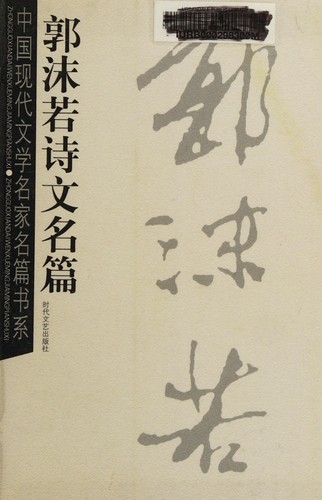 郭沫若诗文名篇
时代文艺出版社
中国现代文学名家名篇书系
ZHONGGUOXIANDAIWENXUEMINGJIAMINGPIANSHUXI●ZHONGGUOXIANDAIWENXUEMINGJIAMINGPIANSHUXI
郭
沫
若